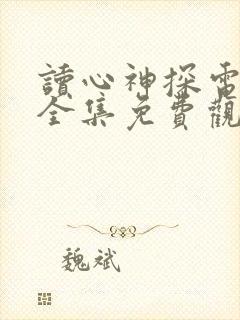 讀心神探電
全集免費觀
魏斌